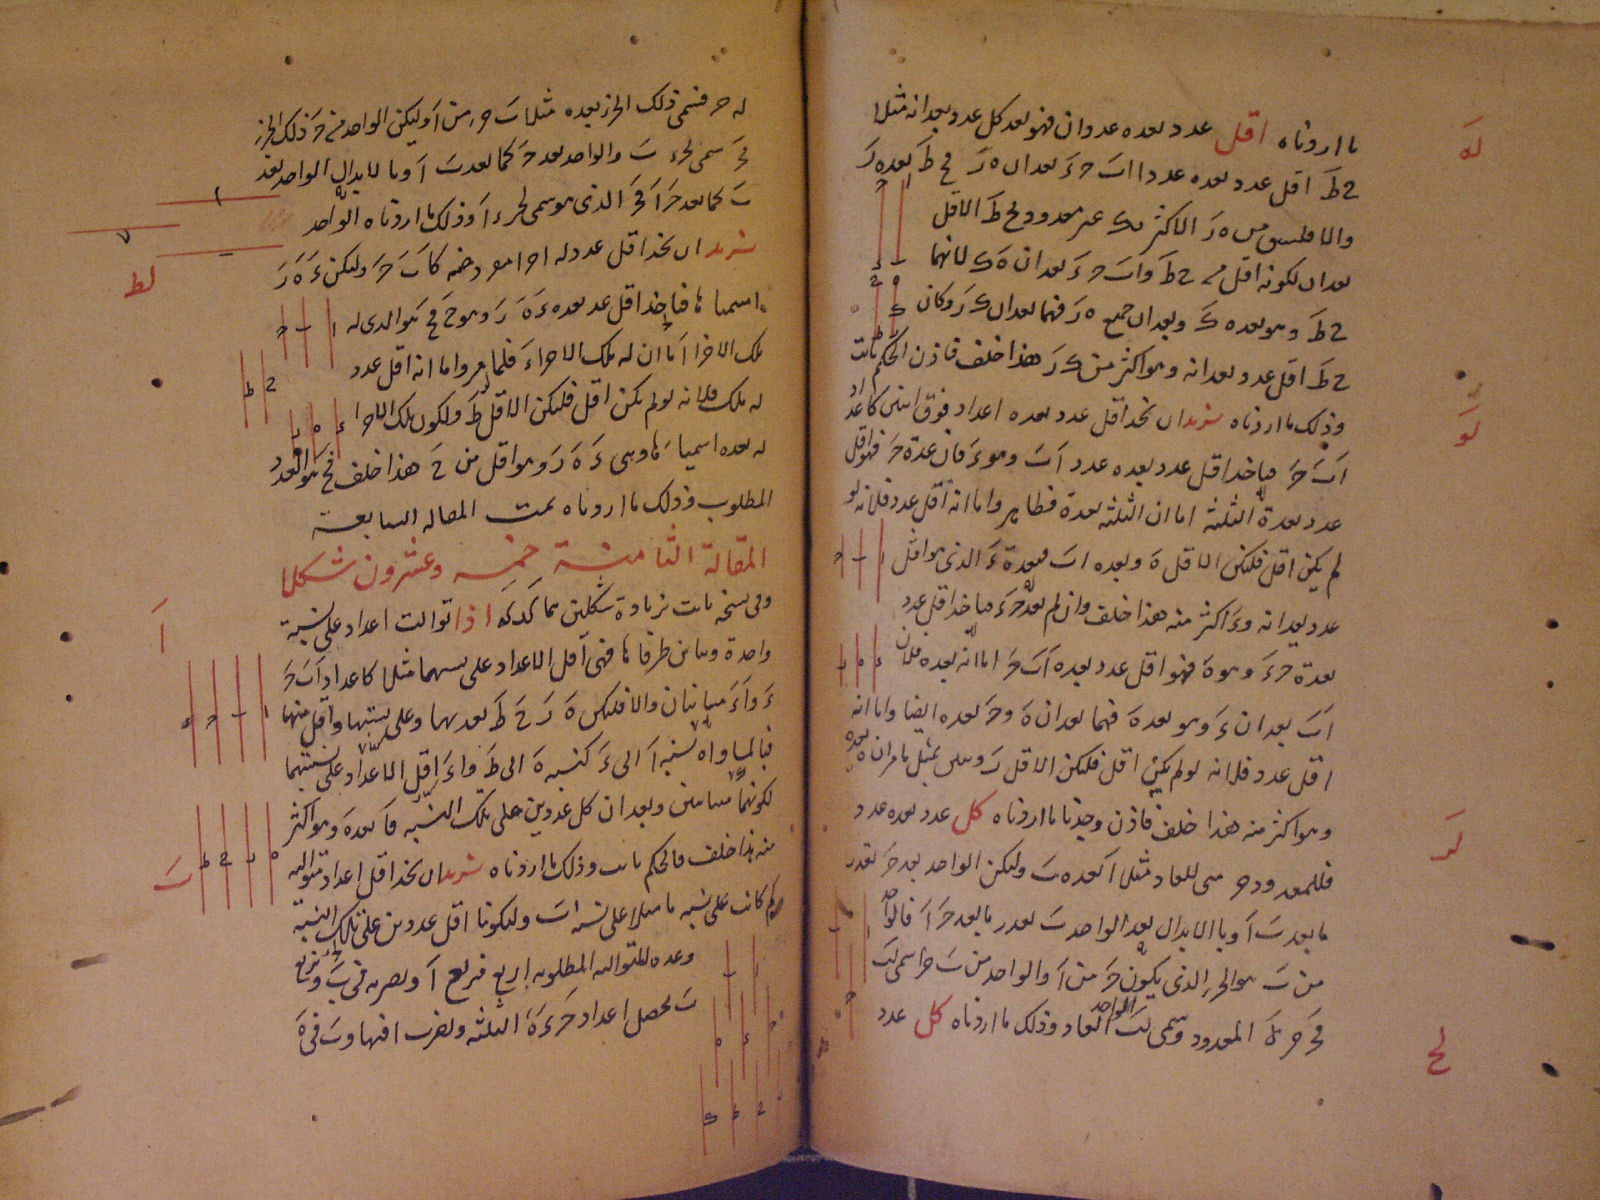 ما اردناه اقل عدد يعده عددان فهو يعد كل عدد يعدانه مثلا
ح ط اقل عدد يعده عددا ا ب ح ء يعدان ه ر فح ط يعد ه ر
والا فليبق من ه ر الاكثر ك ر غير معدود لح ط الاقل
يعدان لكونه اقل من ح ط و ا ب ح ء يعدان ه ك لانهما
ح ط وهو يعد ه ك ويعدان جميع ه ر فهما يعدان ك ر وكان
ح ط اقل عدد يعدانه وهو اكثر من ك ر هذا خلف فاذن الحكم ثابت
وذلك ما اردناه نريد ان نجد اقل عدد يعده اعداد فوق اثنين كاعداد
ا ب ح فناخذ اقل عدد يعده عددا ا ب وهو ء فان عده ح فهو اقل
عدد يعده الثلثة اما ان الثلثة يعده فظاهر واما انه اقل عدد فلانه لو
لم يكن اقل فليكن الاقل ه ويعده ا ب فيعده ء الذى هو اقل
عدد يعدانه و ء اكثر منه هذا خلف وان لم يعد ح ء فناخذ اقل عدد
يعده ح ء وهو ه فهو اقل عدد يعده ا ب ح اما انه يعده فلان
ا ب يعدان ء وهو يعد ه فهما يعدان ه و ح يعده ايضا واما انه
اقل عدد فلانه لو لم يكن اقل فليكن الاقل ر ونبين بمثل ما مر ان ه يعده
وهو اكثر منه هذا خلف فاذن وجدنا ما اردناه كل عدد يعده عدد
فللمعدود جزء سمى للعاد مثلا ا يعده ب وليكن الواحد يعد ح بقدر
ما يعد ب ا وبالابدال يعد الواحد ب بقدر ما يعد ح ا فالواحد
من ب هو الجزء الذى يكون ح من ا والواحد من ب جزء سمى لب
فح جزء لا المعدود وسمى لب العاد وذلك ما اردناه كل عدد
له
لو
لر
لح
له جزء فسمى ذلك الجزء يعده مثلا ب جزء من ا وليكن الواحد من ح ذلك الجزء
فح سمى لجزء ب والواحد يعد ح كما يعد ب ا وبالابدال الواحد يعد
ب كما يعد ح ا فح الذى هو سمى لجزء ا وذلك ما اردناه الواحد
نريد ان نجد اقل عدد له اجزاء مفروضة كا ب ح وليكن ء ه ر
اسمياها فناخذ اقل عدد يعده ء ه ر وهو ح فح هو الذى له
تلك الاجزاء اما ان له تلك الاجزاء فلما مر واما انه اقل عدد
له تلك فلانه لو لم يكن اقل فليكن الاقل ط ولكون تلك الاجزاء
له يعده اسمياها وهى ء ه ر وهو اقل من ح هذا خلف فح هو العدد
المطلوب وذلك ما اردناه تمت المقاله السابعة
المقالة الثامنة خمسه وعشرون شكلا
وفى نسخة ثابت بزيادة شكلين هما كد كه اذا توالت اعداد على نسبة
واحدة وتباين طرفاها فهى اقل الاعداد على نسبتها مثلا كاعداد ا ب ح
ء و ا ء متباينان والا فليكن ه ر ح ط بعددها وعلى نسبتها واقل منها
فبالمساواة نسبة ا الى ء كنسبة ه الى ط و ا ء اقل الاعداد على نسبتهما
لكونهما متباينين ويعدان كل عددين على تلك النسبة فا يعد ه وهو اكثر
منه هذا خلف فالحكم ثابت وذلك ما اردناه نريد ان نجد اقل اعداد متواليه
كم كانت على نسبة ما مثلا على نسبة ا ب وليكونا اقل عددين على تلك النسبة
وعدة المتوالية المطلوبة اربع فنربع ا ونضربه فى ب ونربع
ب يحصل اعداد ح ء ه الثلثه ونضرب ا فيها و ب فى ه
لط
ا
ب